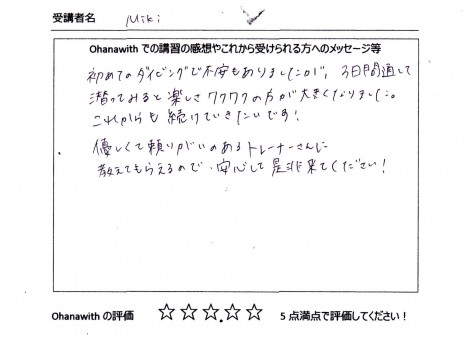 受講者名 Miki
Ohanawith での講習の感想やこれから受けられる方へのメッセージ等
初めてのダイビングで不安もありましたが、3日間通して
潜ってみると楽しさワクワクの方が大きくなりました。
これからも続けていきたいです!
優しくて頼りがいのあるトレーナーさんに
教えてもらえるので、安心して是非来てください!
Ohanawith の評価 ☆☆☆☆☆ 5 点満点で評価してください!